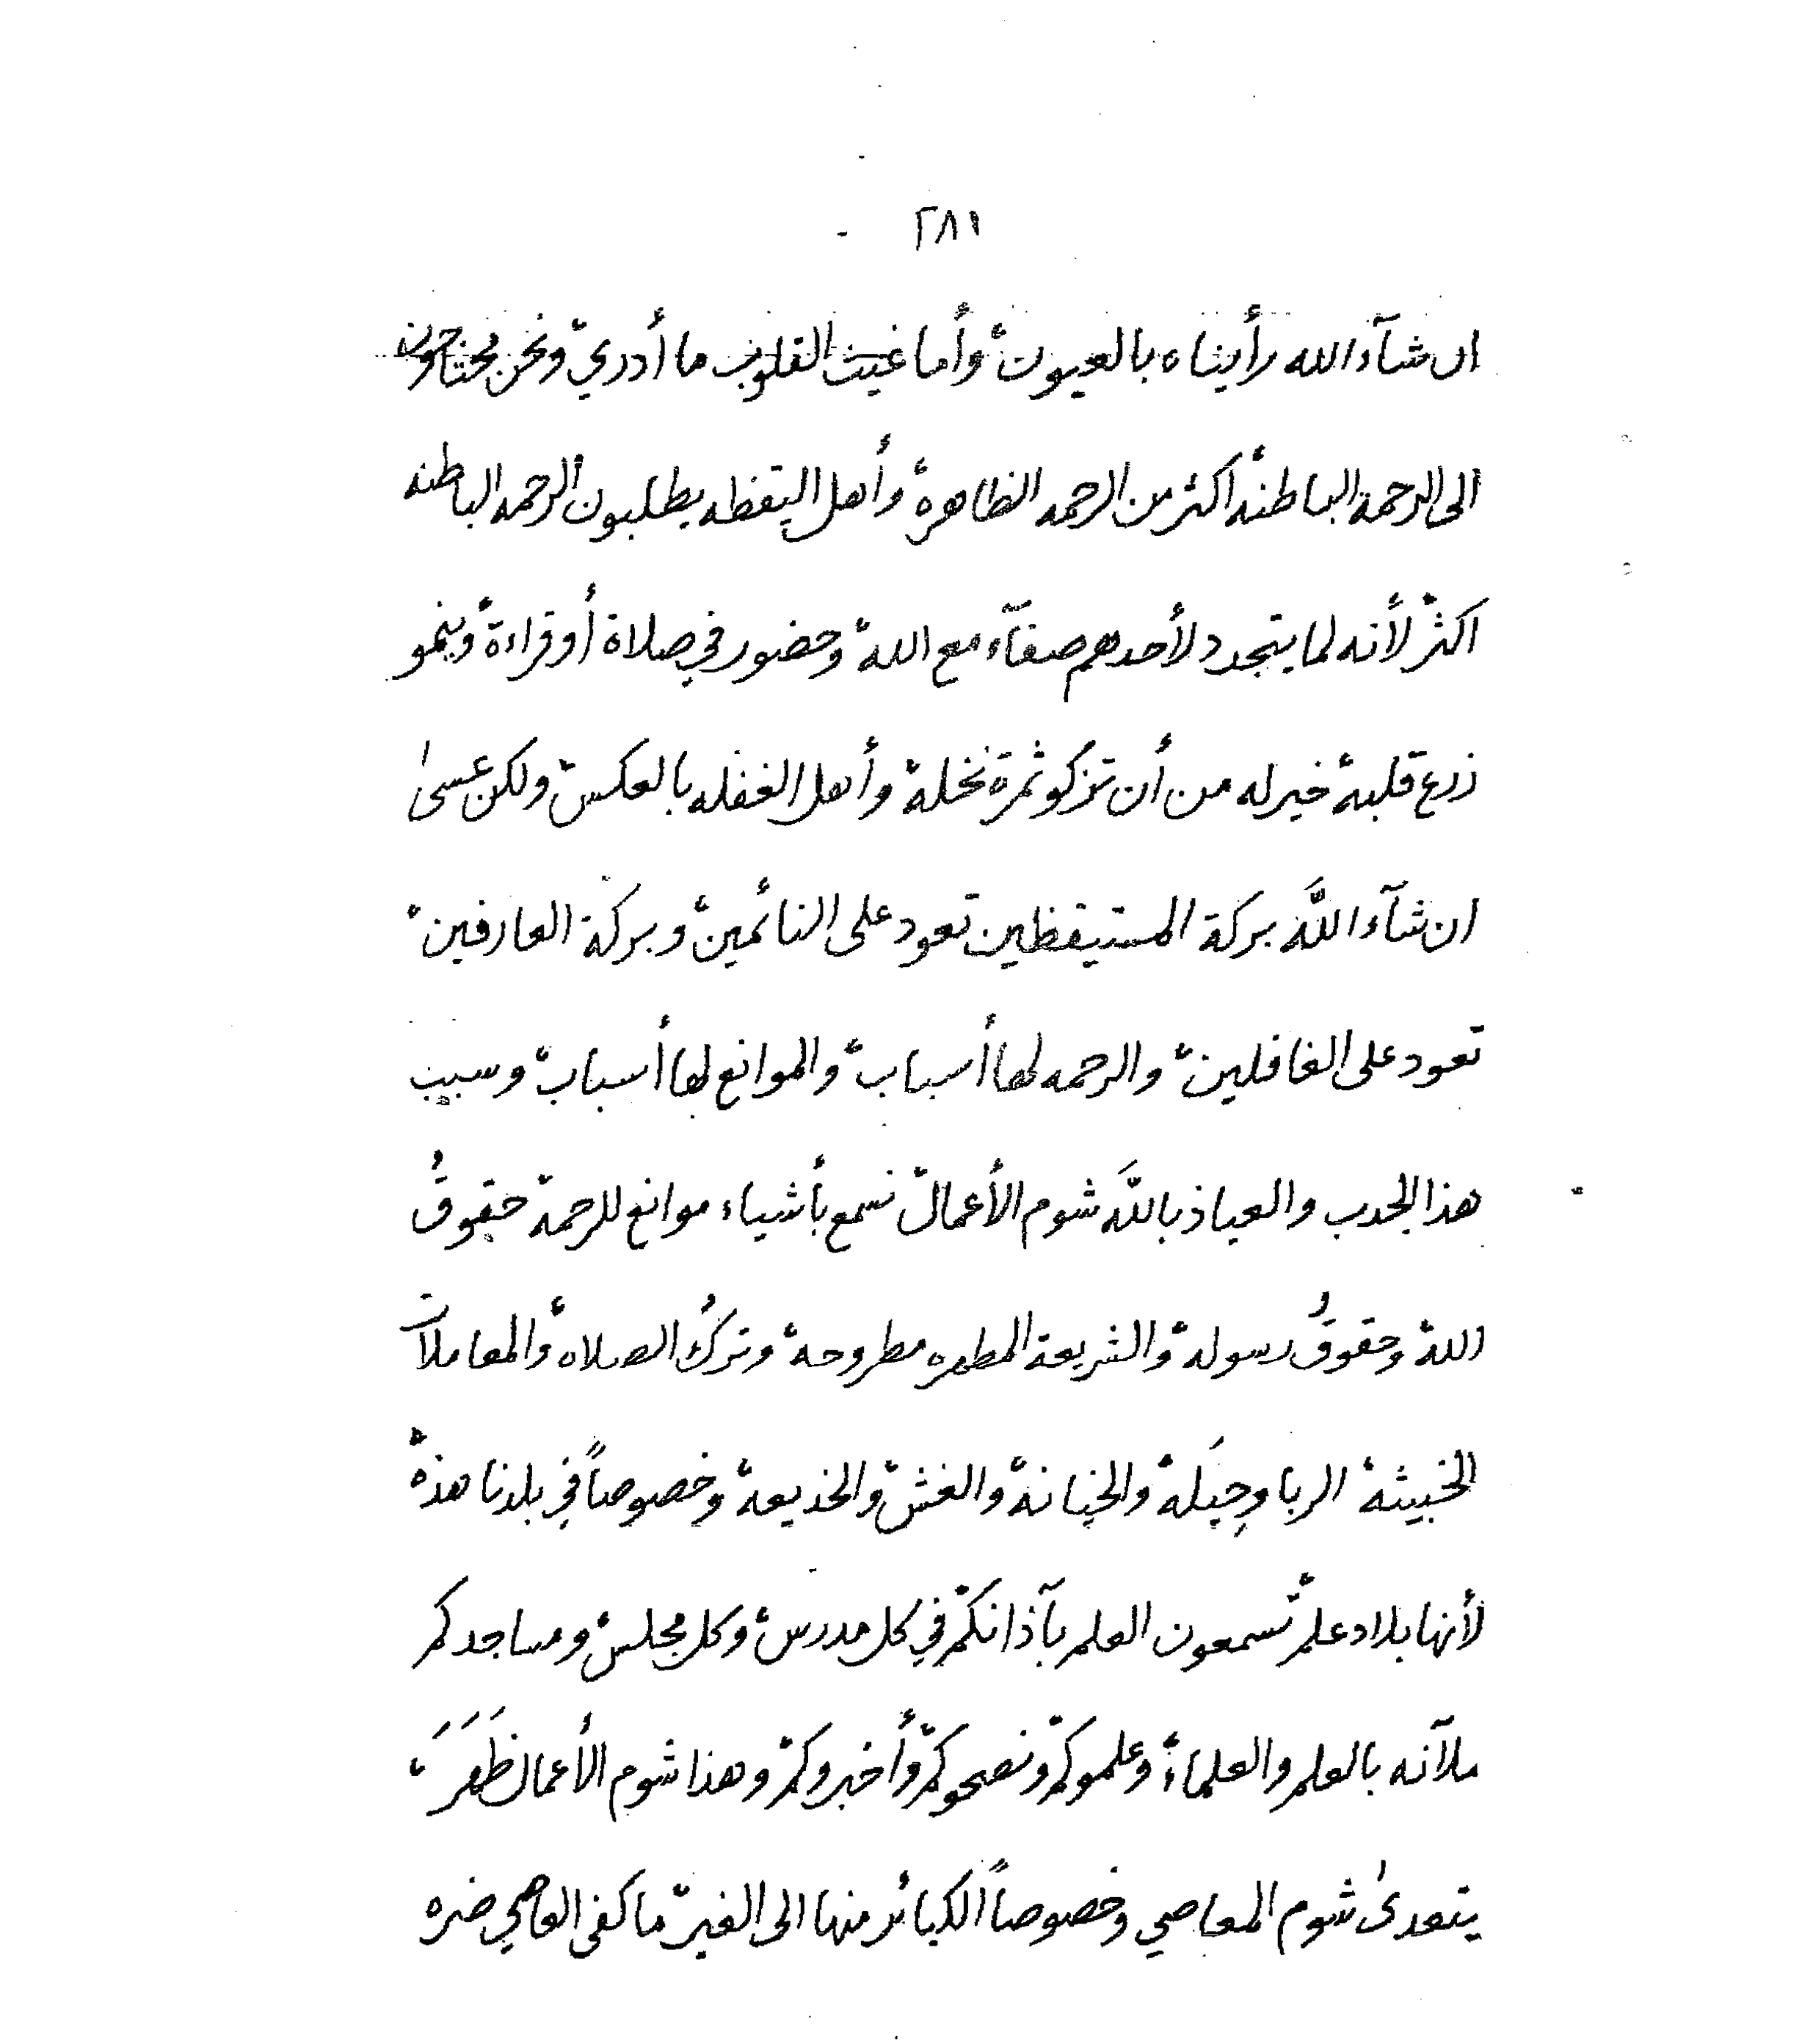 ٢٨١
ان شآء الله رأيناه بالعيون، وأما غيث القلوب ما أدري، ونحن محتاجون
الى الرحمة الباطنة، اكثر من الرحمه الظاهرة، وأهل اليقظه يطلبون الرحمه الباطنه
اكثر، لأنه لما يتجدد لأحدهم صفآء مع الله، وحضور في صلاة أو قراءة، وينمو
زرع قلبه، خير له من أن تزكو ثمرة نخلة، وأهل الغفله بالعكس، ولكن عسىٰ
ان شآء اللَّه بركة المستيقظين تعود على النائمين، وبركة العارفين،
تعود على الغافلين، والرحمه لها أسباب، والموانع لها أسباب، وسبب
هذا الجدب والعياذ باللَّه شوم الأعمال، نسمع بأشياء موانع للرحمة، حقوقُ
الله، وحقوقُ رسوله، والشريعة المطهره مطروحة، وتركُ الصلاه، والمعاملات
الخبيثة، الربا وحِيَله، والخيانة، والغش، والخديعة، وخصوصاً في بلدنا هذه،
لأنها بلاد علم، تسمعون العلم بآذانكم، في كل مدرس، وكل مجلس، ومساجدكم
ملآنه بالعلم والعلماء، وعلموكم، ونصحوكم، وأخبروكم، وهذا شوم الأعمال ظَهَرَ،
يتعدىٰ شوم المعاصي وخصوصاً الكبائر منها الى الغير، ما كفى العاصي ضره